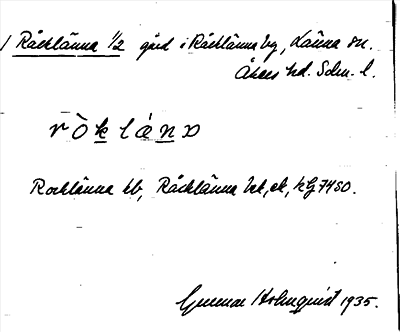 Råcklänna 1/2 gård i Råcklänna by, Länna sn.
Åkers hd. Sdm. l.
ròklánx
Rocklänna kb, Råcklänna hk, ek, kG7480.
Gunnar Holmquist 1935.